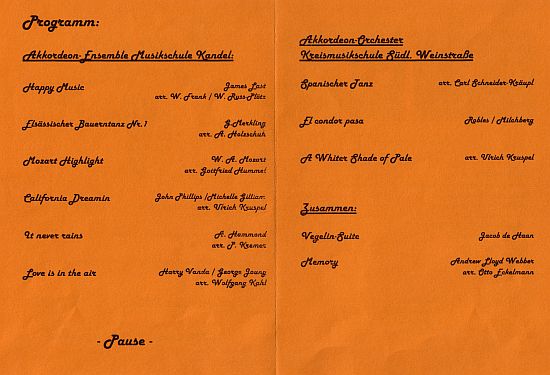 Programm:
Akkordeon-Ensemble Musikschule Kandel:
Happy Music James Last
arr. W. Frank / W. Russ-Plötz
Elsässischer Bauerntanz Nr.1 G.Merkling
arr. A. Holzschuh
Mozart Highlight W. A. Mozart
arr. Gottfried Hummel
California Dreamin John Phillips /Michelle Gilliam
arr. Ulrich Kruspel
It never rains A. Hammond
arr. P. Kremer
Love is in the air Harry Vanda / George Joung
arr. Wolfgang Kahl
- Pause -
Akkordeon-Orchester
Kreismusikschule Südl. Weinstraße
Spanischer Tanz arr. Carl Schneider-Kräupl
El condor pasa Robles / Milchberg
A Whiter Shade of Pale arr. Ulrich Kruspel
Zusammen:
Vegelin-Suite Jacob de Haan
Memory Andrew Lloyd Webber
arr. Otto Eckelmann